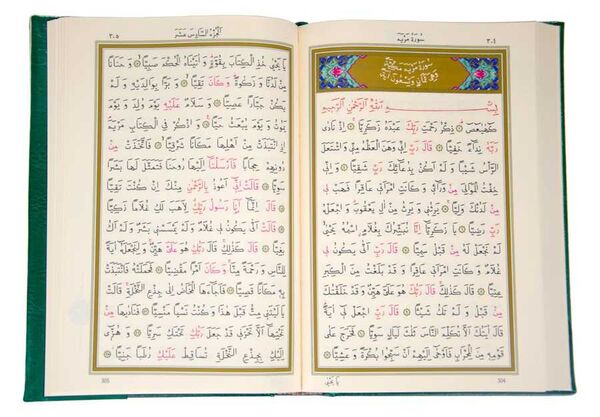 سُورَةُ مَرْيَمَ
٣٠٤
سُورَةُ مَرْيَمَ مَكِّيَّةٌ
وَهِيَ ثَمَانٍ وَتِسْعُونَ اٰيَةً
بِسْمِ اللّٰهِ الرَّحْمٰنِ الرَّحِيمِ
كٓهٰيٰعٓصٓ ۞ ذِكْرُ رَحْمَتِ رَبِّكَ عَبْدَهُ زَكَرِيَّا ۞ اِذْ نَادٰى
رَبَّهُ نِدَٓاءً خَفِيًّا ۞ قَالَ رَبِّ اِنِّي وَهَنَ الْعَظْمُ مِنِّي وَاشْتَعَلَ
الرَّأْسُ شَيْبًا وَلَمْ اَكُنْ بِدُعَٓائِكَ رَبِّ شَقِيًّا ۞ وَاِنِّي
خِفْتُ الْمَوَالِيَ مِنْ وَرَٓائِي وَكَانَتِ امْرَاَتِي عَاقِرًا فَهَبْ لِي
مِنْ لَدُنْكَ وَلِيًّا ۞ يَرِثُنِي وَيَرِثُ مِنْ اٰلِ يَعْقُوبَ وَاجْعَلْهُ
رَبِّ رَضِيًّا ۞ يَا زَكَرِيَّٓا اِنَّا نُبَشِّرُكَ بِغُلَامٍ اسْمُهُ يَحْيٰى
لَمْ نَجْعَلْ لَهُ مِنْ قَبْلُ سَمِيًّا ۞ قَالَ رَبِّ اَنّٰى يَكُونُ لِي
غُلَامٌ وَكَانَتِ امْرَاَتِي عَاقِرًا وَقَدْ بَلَغْتُ مِنَ الْكِبَرِ
عِتِيًّا ۞ قَالَ كَذٰلِكَ قَالَ رَبُّكَ هُوَ عَلَيَّ هَيِّنٌ وَقَدْ خَلَقْتُكَ
مِنْ قَبْلُ وَلَمْ تَكُ شَيْـًٔا ۞ قَالَ رَبِّ اجْعَلْ لِي اٰيَةً
قَالَ اٰيَتُكَ اَلَّا تُكَلِّمَ النَّاسَ ثَلٰثَ لَيَالٍ سَوِيًّا ۞ فَخَرَجَ عَلٰى
قَوْمِهِ مِنَ الْمِحْرَابِ فَاَوْحٰٓى اِلَيْهِمْ اَنْ سَبِّحُوا بُكْرَةً وَعَشِيًّا ۞
يَا يَحْيٰى
304
اَلْجُزْءُ السَّادِسَ عَشَرَ
٣٠٥
يَا يَحْيٰى خُذِ الْكِتَابَ بِقُوَّةٍ وَاٰتَيْنَاهُ الْحُكْمَ صَبِيًّا ۞ وَحَنَانًا
مِنْ لَدُنَّا وَزَكٰوةً وَكَانَ تَقِيًّا ۞ وَبَرًّا بِوَالِدَيْهِ وَلَمْ
يَكُنْ جَبَّارًا عَصِيًّا ۞ وَسَلَامٌ عَلَيْهِ يَوْمَ وُلِدَ وَيَوْمَ
يَمُوتُ وَيَوْمَ يُبْعَثُ حَيًّا ۞ وَاذْكُرْ فِي الْكِتَابِ مَرْيَمَ
اِذِ انْتَبَذَتْ مِنْ اَهْلِهَا مَكَانًا شَرْقِيًّا ۞ فَاتَّخَذَتْ مِنْ
دُونِهِمْ حِجَابًا فَاَرْسَلْنَٓا اِلَيْهَا رُوحَنَا فَتَمَثَّلَ لَهَا بَشَرًا
سَوِيًّا ۞ قَالَتْ اِنِّٓي اَعُوذُ بِالرَّحْمٰنِ مِنْكَ اِنْ كُنْتَ تَقِيًّا
۞ قَالَ اِنَّمَٓا اَنَا رَسُولُ رَبِّكِ لِاَهَبَ لَكِ غُلَامًا زَكِيًّا
۞ قَالَتْ اَنّٰى يَكُونُ لِي غُلَامٌ وَلَمْ يَمْسَسْنِي بَشَرٌ وَلَمْ اَكُ
بَغِيًّا ۞ قَالَ كَذٰلِكِ قَالَ رَبُّكِ هُوَ عَلَيَّ هَيِّنٌ وَلِنَجْعَلَهُٓ اٰيَةً
لِلنَّاسِ وَرَحْمَةً مِنَّا وَكَانَ اَمْرًا مَقْضِيًّا ۞ فَحَمَلَتْهُ فَانْتَبَذَتْ
بِهِ مَكَانًا قَصِيًّا ۞ فَاَجَٓاءَهَا الْمَخَاضُ اِلٰى جِذْعِ النَّخْلَةِ قَالَتْ
يَا لَيْتَنِي مِتُّ قَبْلَ هٰذَا وَكُنْتُ نَسْيًا مَنْسِيًّا ۞ فَنَادٰيهَا مِنْ
تَحْتِهَٓا اَلَّا تَحْزَنِي قَدْ جَعَلَ رَبُّكِ تَحْتَكِ سَرِيًّا ۞ وَهُزِّٓي
اِلَيْكِ بِجِذْعِ النَّخْلَةِ تُسَاقِطْ عَلَيْكِ رُطَبًا جَنِيًّا ۞
305